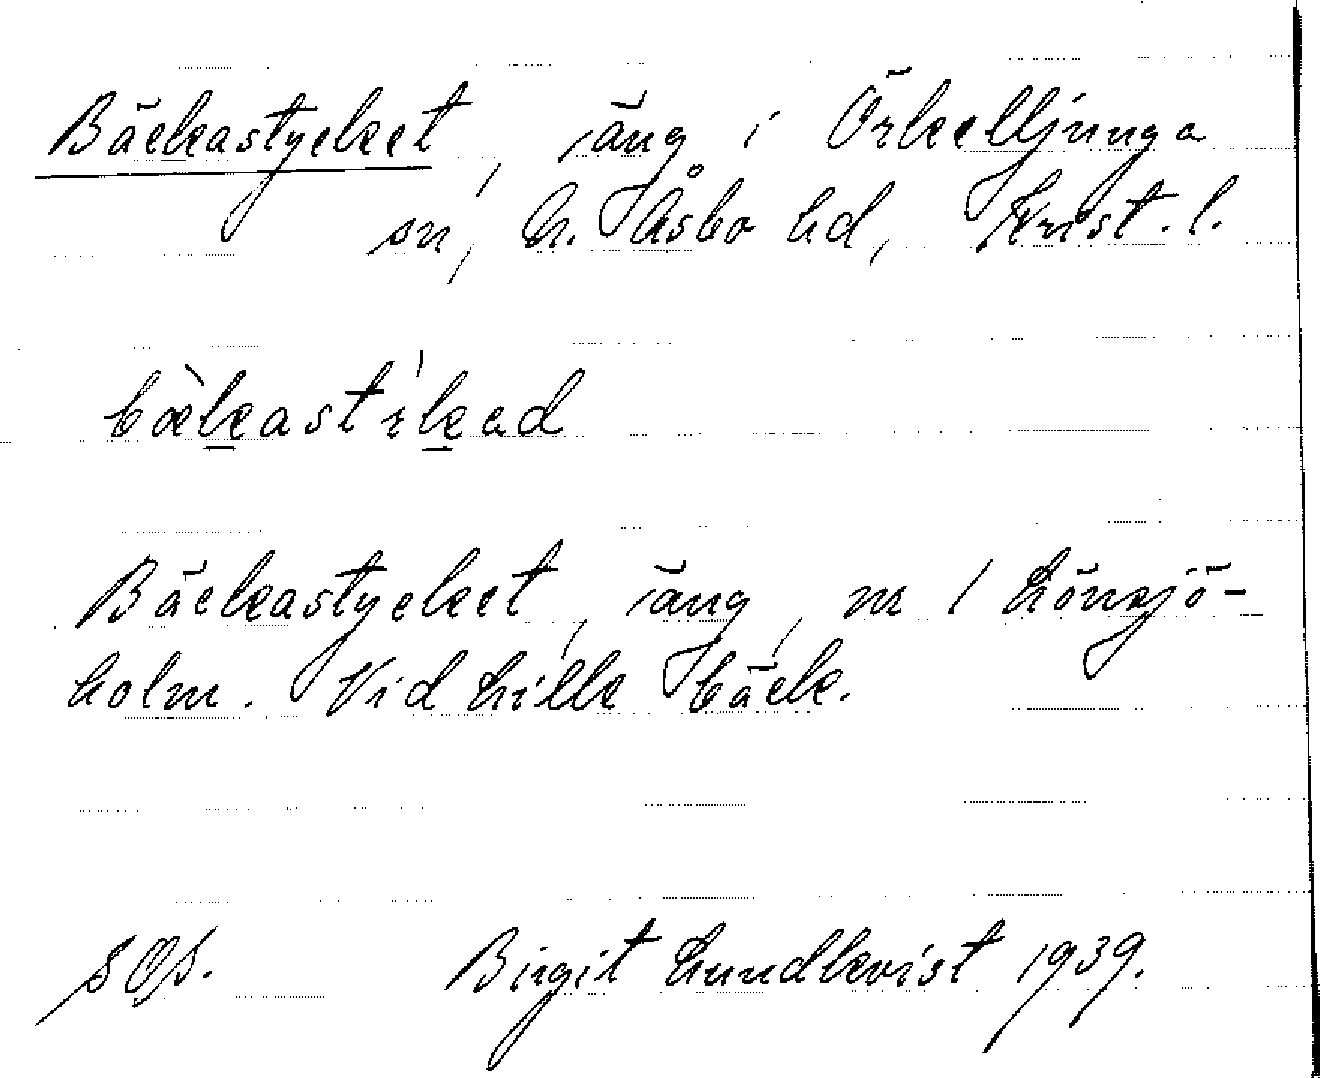 Bäckastycket, äng i Örkelljunga
sn, N. Åsbo hd, Krist. l.
bækastykad
Bäckastycket, äng, nr 1 Lönsjö-
holm. Vid Lille bäck.
Birgit Lundkvist 1939.